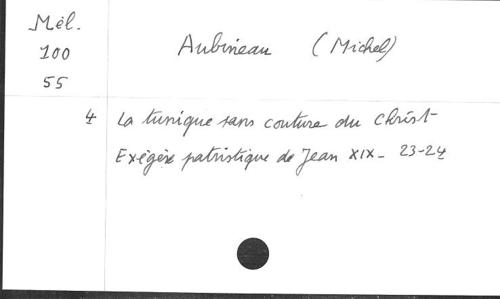 Mél.
100
55
Aubineau (Michel)
4 La tunique sans couture du Christ
Exégèse patristique de Jean XIX - 23-24